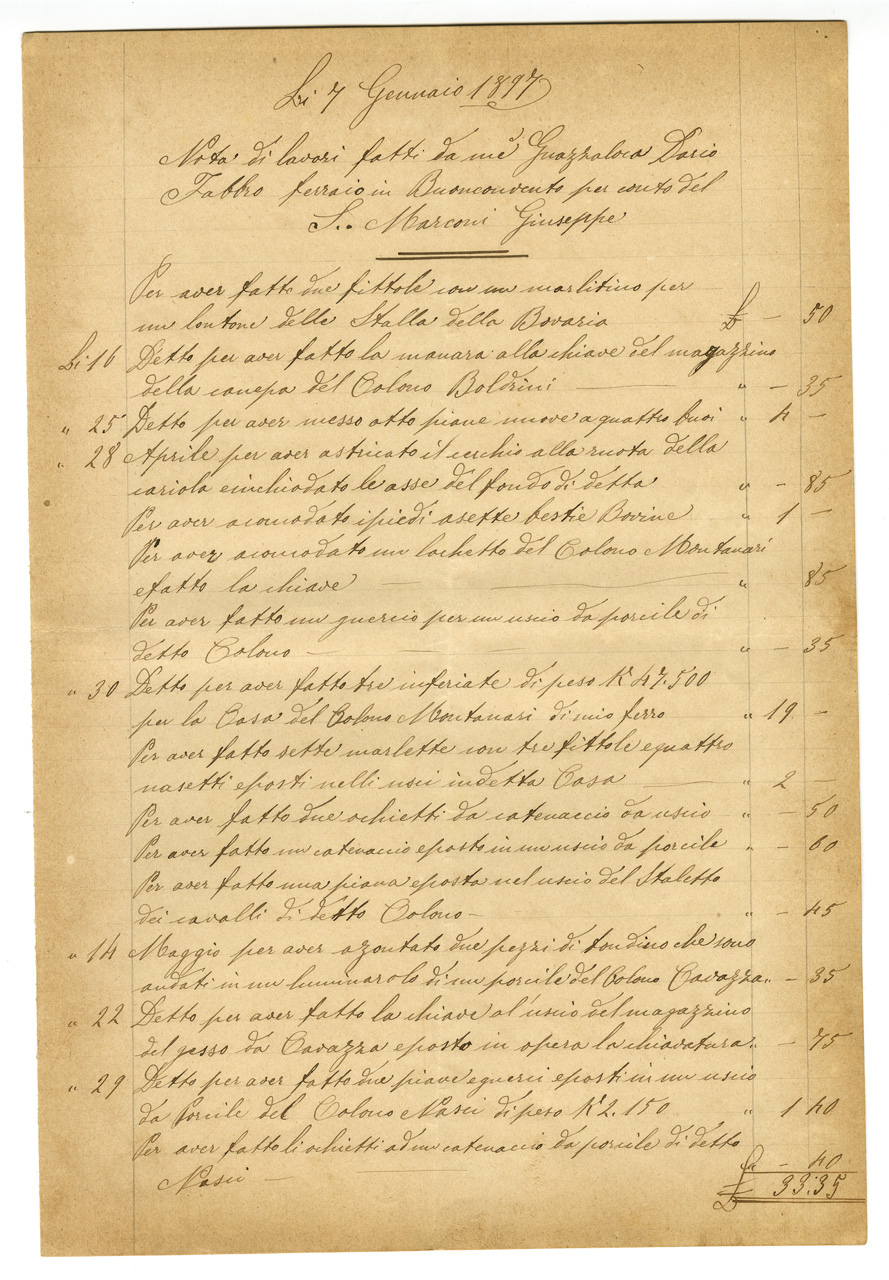 Li 7 Gennaio 1897
Nota di lavori fatti da me Guazzaloca Dario
Fabbro ferraio in Buonconvento per conto del
S.. Marconi Giuseppe
Per aver fatto due fittole con un marlitino per
un lontone delle Stalla della Bovaria £ - 50
Li 16 Detto per aver fatto la manara alla chiave del magazzino
della canepa del Colono Boldrini " - 35
" 25 Detto per aver messo otto piane nuove a quattro buoi " 4 -
" 28 Aprile per aver astricato il cerchio alla ruota della
cariola einchiodato le asse del fondo di detta " - 85
Per aver acomodato i piedi asette bestie Bovine " 1 -
Per aver acomodato un lochetto del Colono Montanari
efatto la chiave " 85
Per aver fatto un guercio per un uscio da porcile di
detto Colono " - 35
" 30 Detto per aver fatto tre inferiate di peso K 47.500
per la Casa del Colono Montanari di mio ferro " 19 -
Per aver fatto sette marlette con tre fittole equattro
nasetti eposti nelli usci indetta Casa " 2 -
Per aver fatto due ochietti da catenaccio da uscio " - 50
Per aver fatto un catenaccio eposto in un uscio da porcile " - 60
Per aver fatto una piana eposta nel uscio del Staletto
dei cavalli di detto Colono " - 45
" 14 Maggio per aver azontato due pezzi di tondino che sono
andati in un luminarolo di un porcile del Colono Cavazza " - 35
" 22 Detto per aver fatto la chiave al'uscio del magazzino
del gesso da Cavazza eposto in opera la chiavatura " - 75
" 29 Detto per aver fatto due piane eguerci eposti in un uscio
da Porcile del Colono Nasci di peso K 2.150 " 1 40
Per aver fatto li ochietti ad un catenaccio da porcile di detto
Nasci £ - 40
£ 33.35